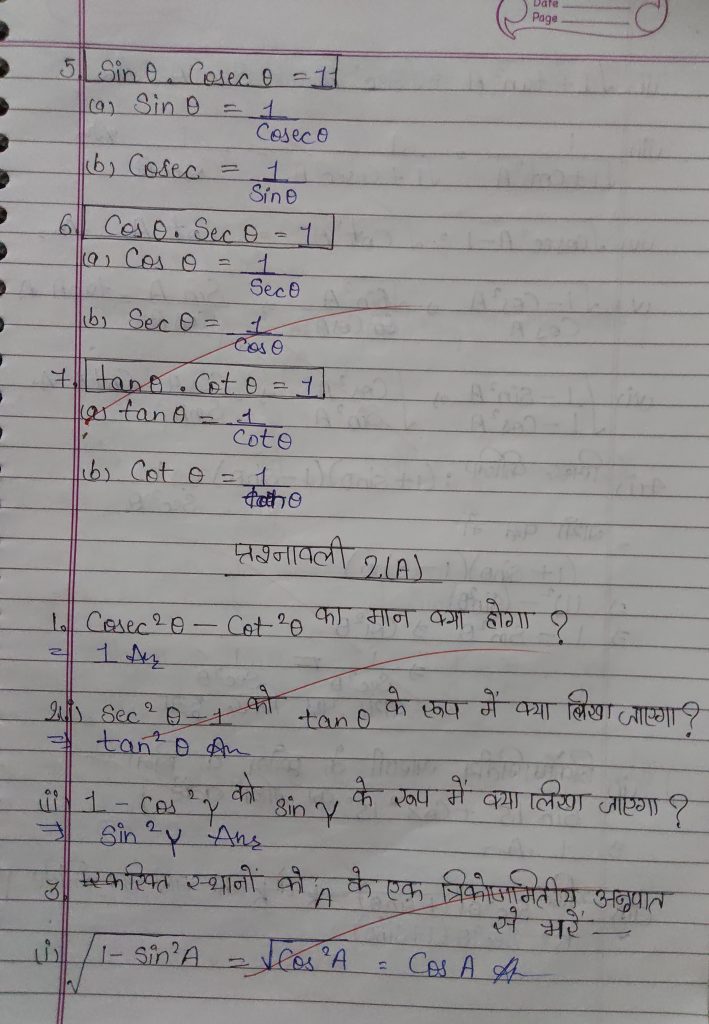 Date
Page
5. Sin θ . Cosec θ = 1
(a) Sin θ = 1
Cosec θ
(b) Cosec = 1
Sin θ
6. Cos θ . Sec θ = 1
(a) Cos θ = 1
Sec θ
(b) Sec θ = 1
Cos θ
7. tan θ . Cot θ = 1
(a) tan θ = 1
Cot θ
(b) Cot θ = 1
tan θ
प्रश्नावली 2.(A)
1. Cosec² θ – Cot² θ का मान क्या होगा ?
= 1 Ans
2.(i) Sec² θ – 1 को tan θ के रूप में क्या लिखा जाएगा ?
⇒ tan² θ Ans
(ii) 1 – Cos² γ को sin γ के रूप में क्या लिखा जाएगा ?
⇒ Sin² γ Ans
3. रिक्त स्थानों को A के एक त्रिकोणमितीय अनुपात
से भरें —
(i) √1 – Sin² A = √Cos² A = Cos A